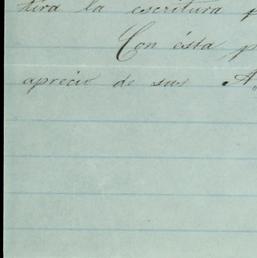 la escritura
Con ésta, p
aprecio de sus A